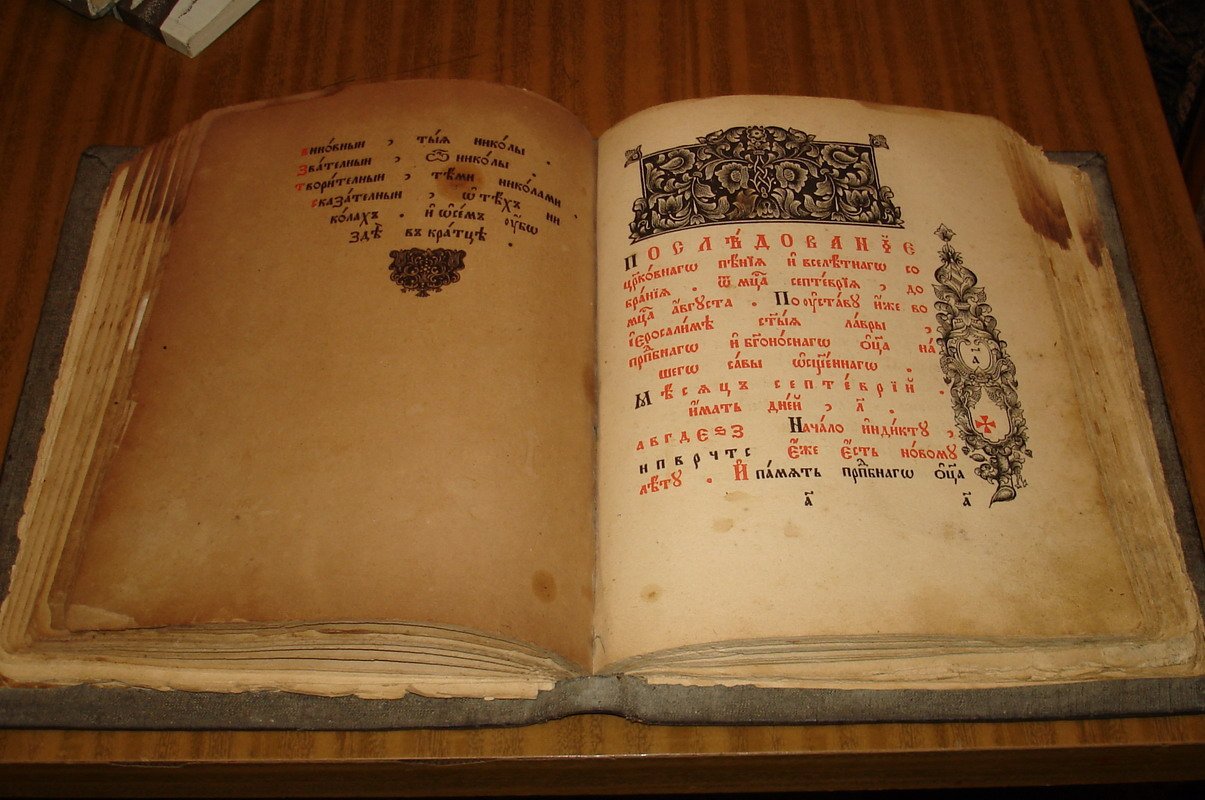 виновныи , ты́ѧ нико́лы .
Зва́телныи , ѽ нико́лы .
твори́телныи , тѣ́ми нико́лами
сказа́телныи , ѡ҆ тѣ́хъ ни
ко́лахъ . и҆ ѡ҆се́мъ ᲂу҆́бѡ
здѣ̀ въ кра́тцѣ .
ПОСЛѢ́ДОВАНЇЕ
цр҃ко́внагѡ пѣ́нїѧ и҆ вселѣ́тнагѡ со
бра́нїѧ . ѿ мцⷭ҇а септе́врїѧ , до
мцⷭ҇а а҆́вгꙋста . По ᲂу҆ста́вꙋ и҆́же во
і҆ерᲂсали́мѣ ст҃ы́ѧ ла́вры ,
прпⷣбнагѡ и҆ бг҃оно́снагѡ ѻ҆ц҃а̀ на́
шегѡ са́вы ѡ҆сщ҃е́ннагѡ .
Мѣ́сѧцъ септе́врїй .
и҆́мать дне́й , л҃ .
а в г д е ѕ з Нача́ло и҆нди́ктꙋ ,
н п в р ч т с є҆́же є҆́сть но́вомꙋ
лѣ́тꙋ . И҆ па́мѧть прпⷣбнагѡ ѻ҆ц҃а̀
а҃ а҃